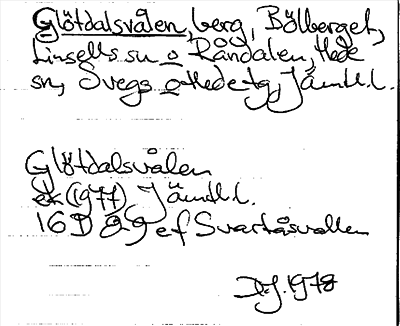 Glötdalsvålen, berg, Bölberget,
Linsells sn o Råndalen, Hede
sn, Svegs o Hede tg, Jämtl.l.
Glötdalsvålen
ek (1977) Jämtl.l.
16D 8g ef Svartåsvallen
D.J. 1978